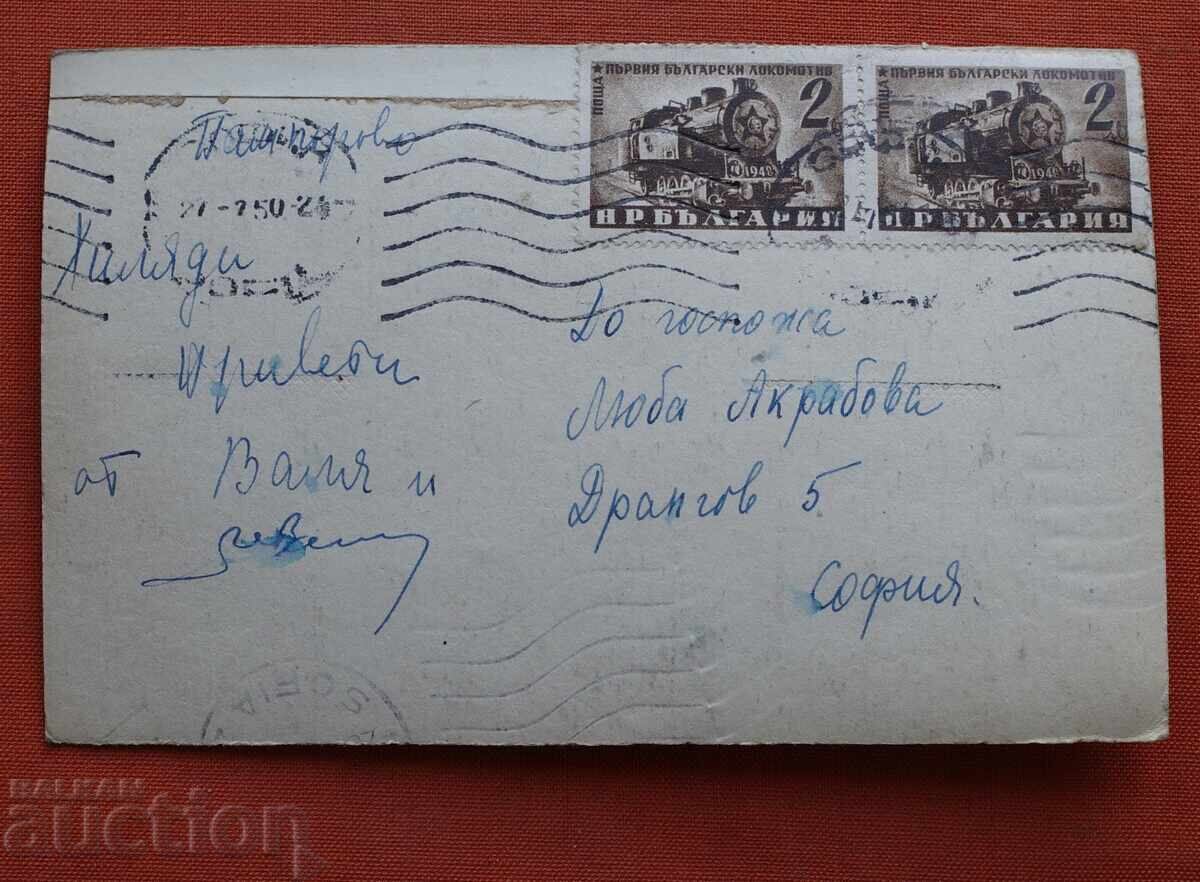 ПОЩА ПЪРВИЯ БЪЛГАРСКИ ЛОКОМОТИВ
2
1948
Н Р БЪЛГАРИЯ
ПОЩА ПЪРВИЯ БЪЛГАРСКИ ЛОКОМОТИВ
2
1948
Н Р БЪЛГАРИЯ
Пампорово
27-7 50
Хиляди
привети
от Валя и
До госпожа
Люба Акрабова
Драгов 5
София.
SOFIA
BALKAN
auction